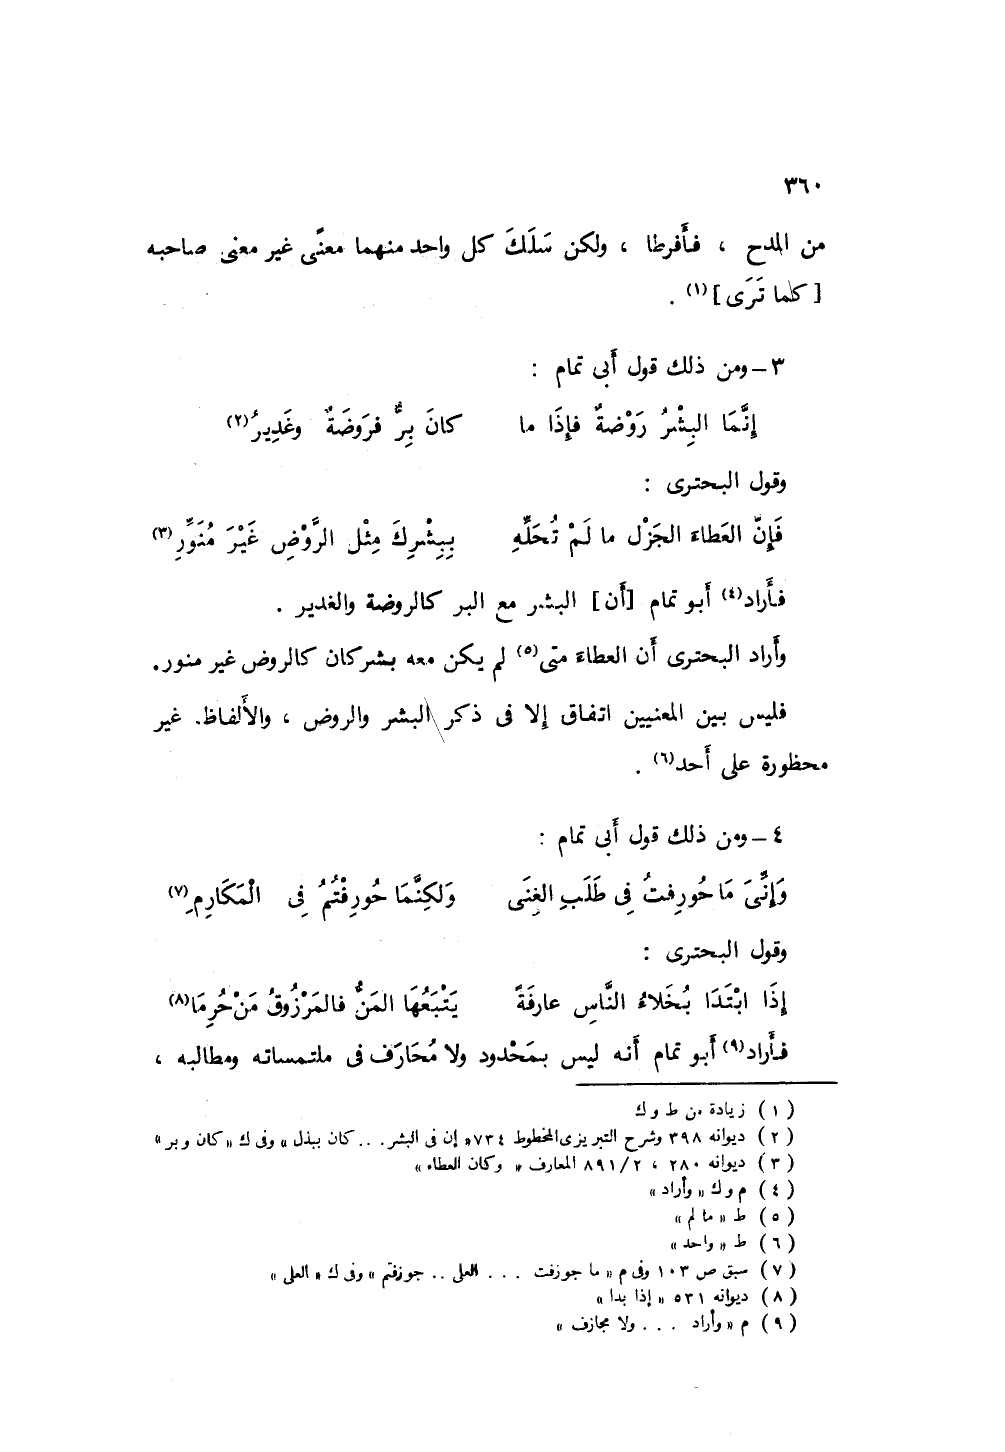 ٣٦٠
من المدح ، فأَفرطا ، ولكن سَلَكَ كل واحد منهما معنًى غير معنى صاحبه
[ كلما تَرَى ](١) .
٣ – ومن ذلك قول أَبى تمام :
إِنَّمَا البِشْرُ رَوْضةٌ فإِذَا ما كانَ بِرٌّ فرَوضَةٌ وغَدِيرُ(٢)
وقول البحترى :
فَإِنَّ العَطاءَ الجَزْل ما لَمْ تُحَلِّهِ بِبِشْرِكَ مِثْل الرَّوْضِ غَيْرَ مُنَوِّرِ(٣)
فأَراد(٤) أَبو تمام [أَن] البشر مع البر كالروضة والغدير .
وأَراد البحترى أَن العطاءَ متى(٥) لم يكن معه بشر كان كالروض غير منور.
فليس بين المعنيين اتفاق إِلا فى ذكر البشر والروض ، والأَلفاظ. غير
محظورة على أَحد(٦) .
٤ – ومن ذلك قول أَبى تمام :
وَإِنِّىَ مَا حُورِفتُ فِى طَلَبِ الغِنَى وَلكِنَّمَا حُورِفْتُمُ فِى الْمَكَارِمِ(٧)
وقول البحترى :
إِذَا ابْتَدَا بُخَلاءُ النَّاسِ عارفَةً يَتْبَعُهَا المَنُّ فالمَرْزُوقُ مَنْ حُرِمَا(٨)
فأَراد(٩) أَبو تمام أَنه ليس بمَحْدود ولا مُحَارَف فى ملتمساته ومطالبه ،
( ١ ) زيادة من ط و ك
( ٢ ) ديوانه ٣٩٨ وشرح التبريزى المخطوط ٧٣٤ « إن فى البشر . . . كان ببذل » وفى ك « كان وبر »
( ٣ ) ديوانه ٢٨٠ ، ٢/ ٨٩١ المعارف « وكان العطاء »
( ٤ ) م و ك « وأراد »
( ٥ ) ط « ما لم »
( ٦ ) ط « واحد »
( ٧ ) سبق ص ١٠٣ وفى م « ما جوزفت . . . العلى . . جوزفتم » وفى ك « العلى »
( ٨ ) ديوانه ٥٣١ « إذا بدا »
( ٩ ) م « وأراد . . . ولا مجازف »